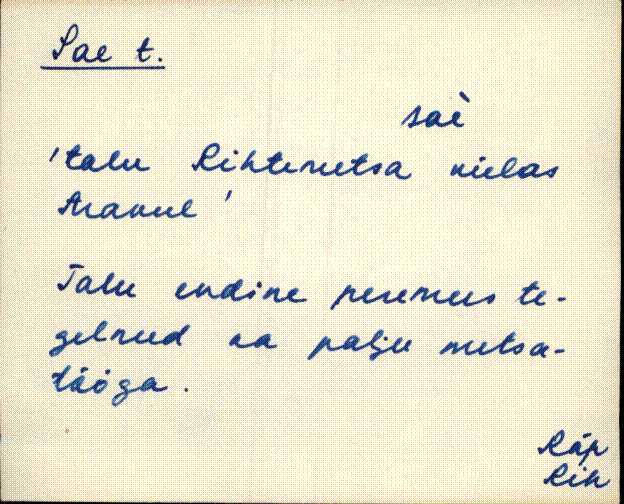 Sae t.
saè
'talu Rihtemetsa külas
Aravul'
Talu endine peremees te-
gelnud ka palju metsa-
tööga.
Räp
Rih